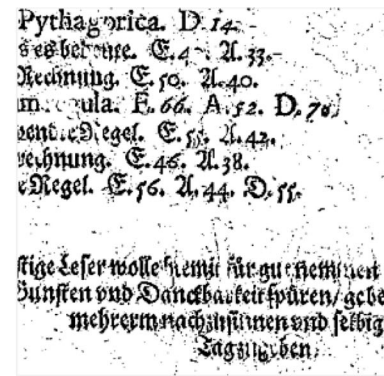 Pythagorica. D. 14.
E. 4 A. 33.
Rechnung. E. 50. A. 40.
E. 66. A. 52. D. 70.
Regel. E. 55. A. 42.
rechnung. E. 46. A. 38.
Regel. E. 56. A. 44. D. 55.
Leser wolle hiemit für gut nemmen
vnd Danckbarkeit spüren/ gebe
mehrerm nachzusinnen vnd selbig
Tag zugeben.